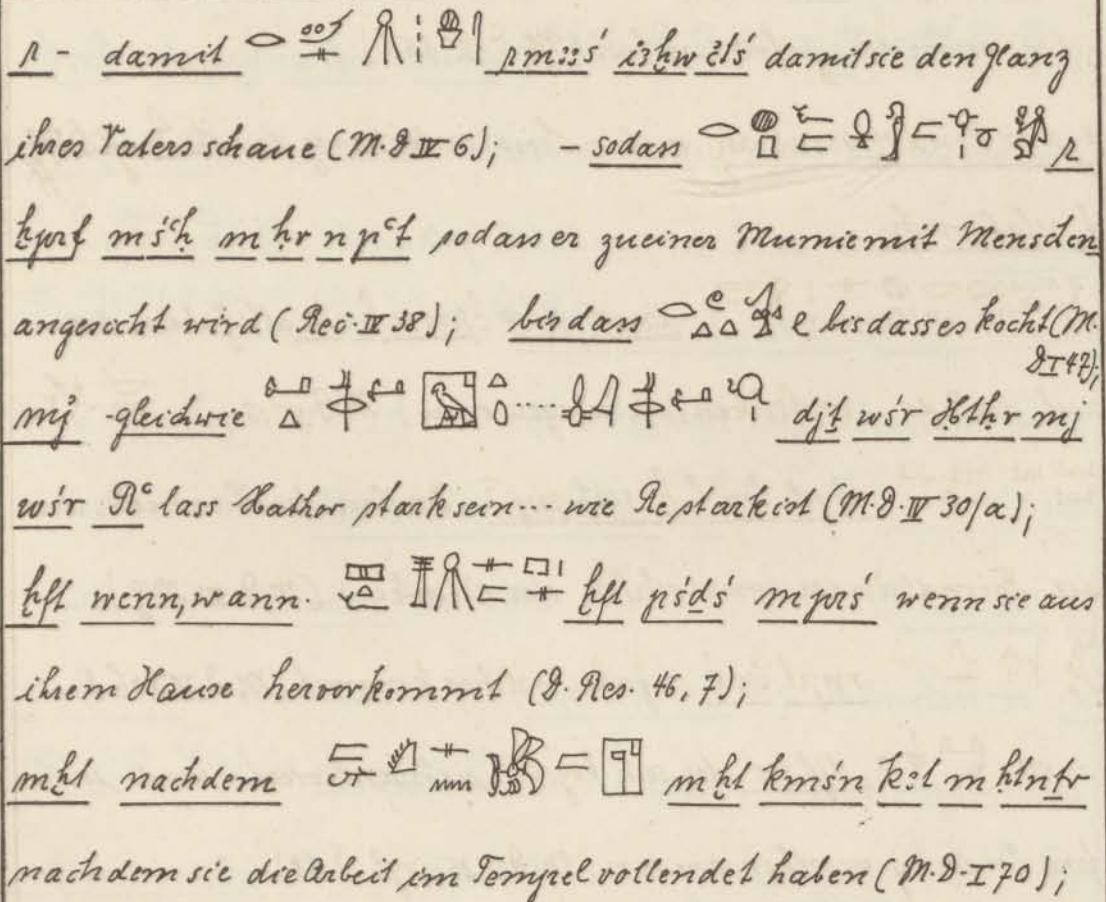 r - damit r m33ś i3ḫw ỉtś damit sie den Glanz
ihres Vaters schaue (M.D IV 6); - sodass r
ḫprf m śʿḥ m ḥr n pʿt sodass er zu einer Mumie mit Menschen
angesicht wird (Rec. IV 38); bis dass bis dass es kocht (M.
D I 47);
mj - gleichwie djt wśr Ḥtḥr mj
wśr Rʿ lass Hathor stark sein... wie Re stark ist (M.D. IV 30/a);
ḫft wenn, wann. ḫft pśḏś m prś wenn sie aus
ihrem Hause hervorkommt (D. Res. 46, 7);
mḫt nachdem mḫt kmśn k3t m ḥtnṯr
nachdem sie die Arbeit im Tempel vollendet haben (M.D. I 70);